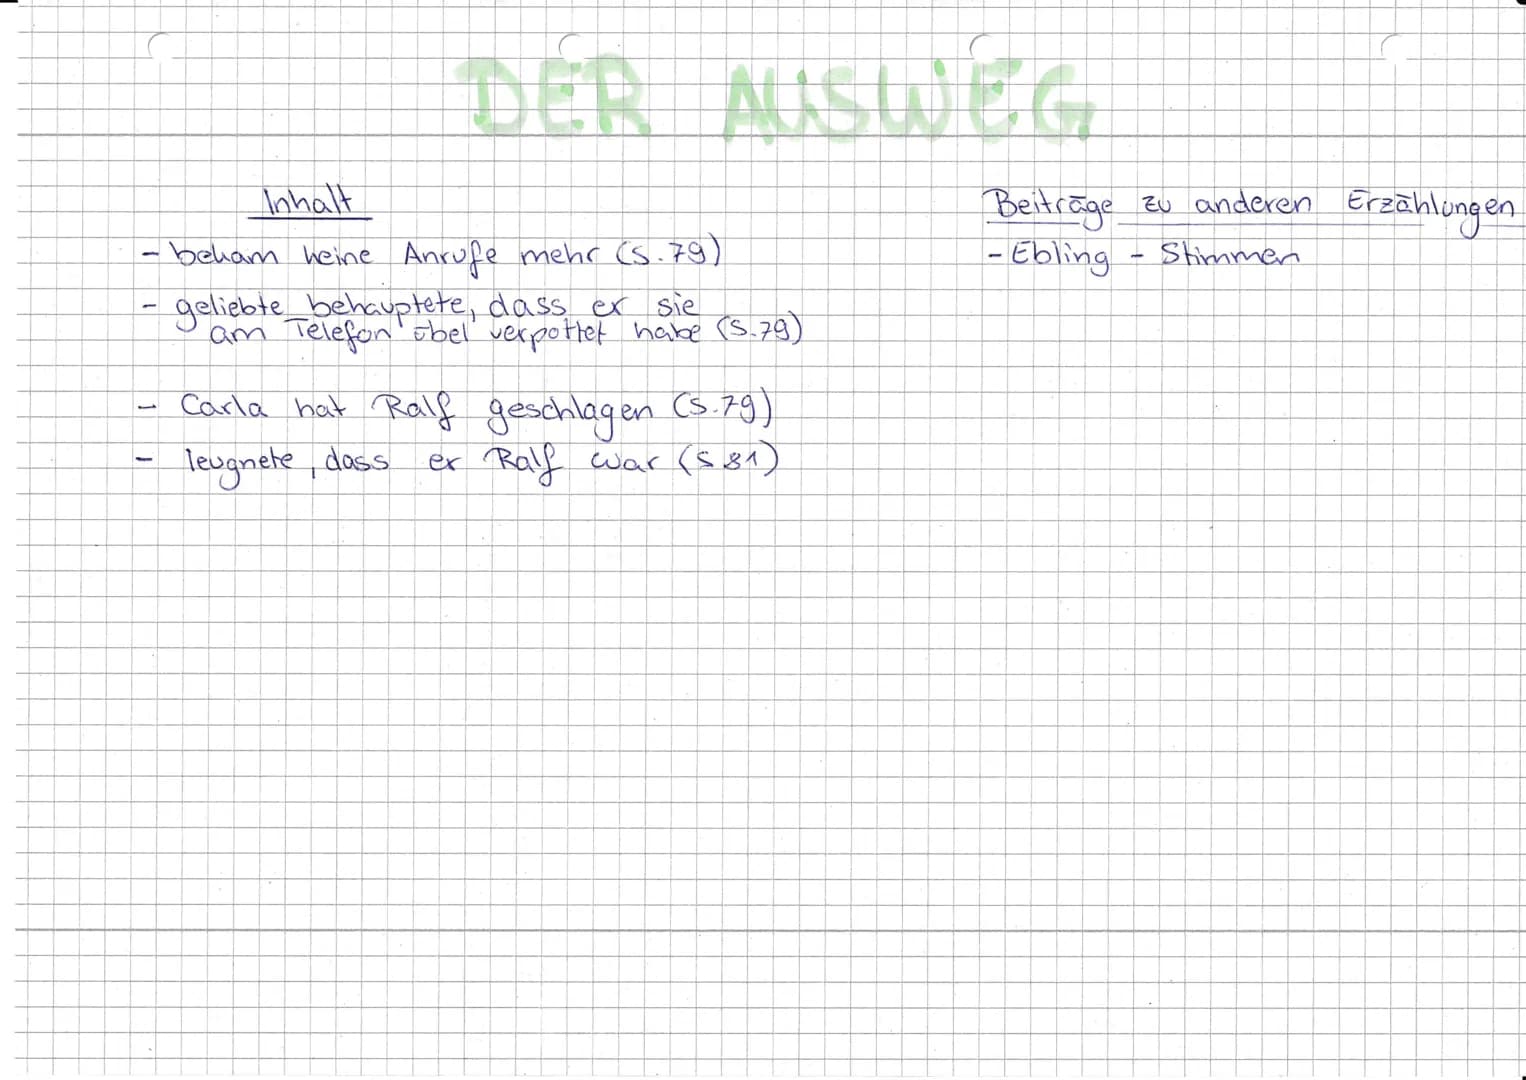 DER AUSWEG
Inhalt
- bekam keine Anrufe mehr (S.79)
- geliebte behauptete, dass er sie
am Telefon übel verpottet habe (S.79)
- Carla hat Ralf geschlagen (S.79)
- leugnete, dass er Ralf war (S 81)
Beiträge zu anderen Erzählungen
- Ebling - Stimmen